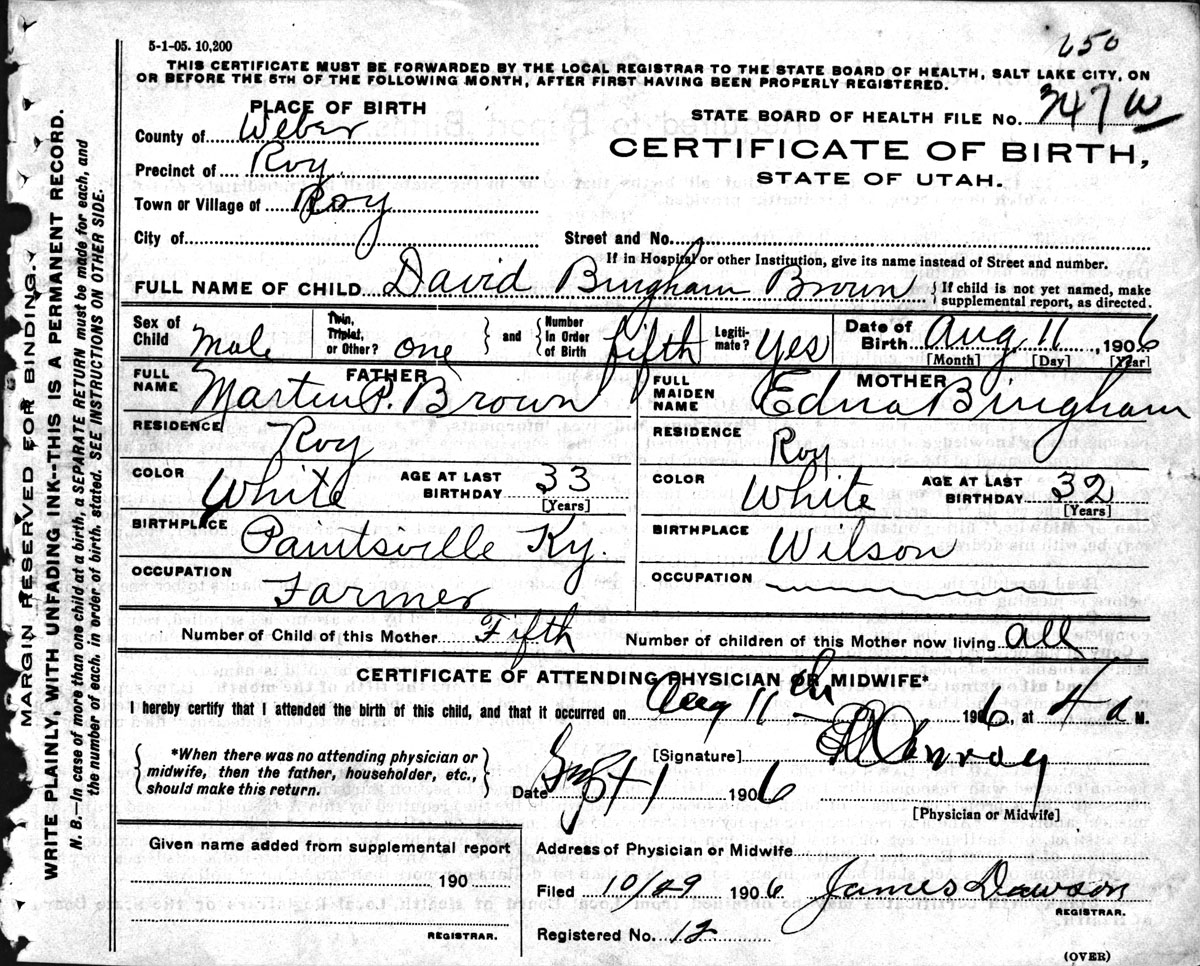 5-1-05. 10,200
650
THIS CERTIFICATE MUST BE FORWARDED BY THE LOCAL REGISTRAR TO THE STATE BOARD OF HEALTH, SALT LAKE CITY, ON
OR BEFORE THE 5TH OF THE FOLLOWING MONTH, AFTER FIRST HAVING BEEN PROPERLY REGISTERED.
PLACE OF BIRTH
County of Weber
Precinct of Roy
Town or Village of Roy
City of
STATE BOARD OF HEALTH FILE NO. 347 W
CERTIFICATE OF BIRTH,
STATE OF UTAH.
Street and No.
If in Hospital or other Institution, give its name instead of Street and number.
FULL NAME OF CHILD David Bingham Brown { If child is not yet named, make
supplemental report, as directed.
Sex of Child Male
Twin, Triplet, or Other? one } and { Number in Order of Birth fifth
Legitimate? Yes
Date of Birth Aug 11, 1906
[Month] [Day] [Year]
FATHER
FULL NAME Martin P. Brown
RESIDENCE Roy
COLOR White AGE AT LAST BIRTHDAY 33
[Years]
BIRTHPLACE Paintsville Ky.
OCCUPATION Farmer
MOTHER
FULL MAIDEN NAME Edna Bingham
RESIDENCE Roy
COLOR White AGE AT LAST BIRTHDAY 32
[Years]
BIRTHPLACE Wilson
OCCUPATION
Number of Child of this Mother Fifth Number of children of this Mother now living all
CERTIFICATE OF ATTENDING PHYSICIAN OR MIDWIFE*
I hereby certify that I attended the birth of this child, and that it occurred on Aug 11th 1906, at 4 a M.
{ *When there was no attending physician or
midwife, then the father, householder, etc.,
should make this return. }
[Signature]
Date Sept 1 1906
[Physician or Midwife]
Given name added from supplemental report
190
REGISTRAR.
Address of Physician or Midwife
Filed 10/29 1906 James Dawson
REGISTRAR.
Registered No. 12
(OVER)
MARGIN RESERVED FOR BINDING.
WRITE PLAINLY, WITH UNFADING INK--THIS IS A PERMANENT RECORD.
N. B.—In case of more than one child at a birth, a SEPARATE RETURN must be made for each, and
the number of each, in order of birth, stated. SEE INSTRUCTIONS ON OTHER SIDE.